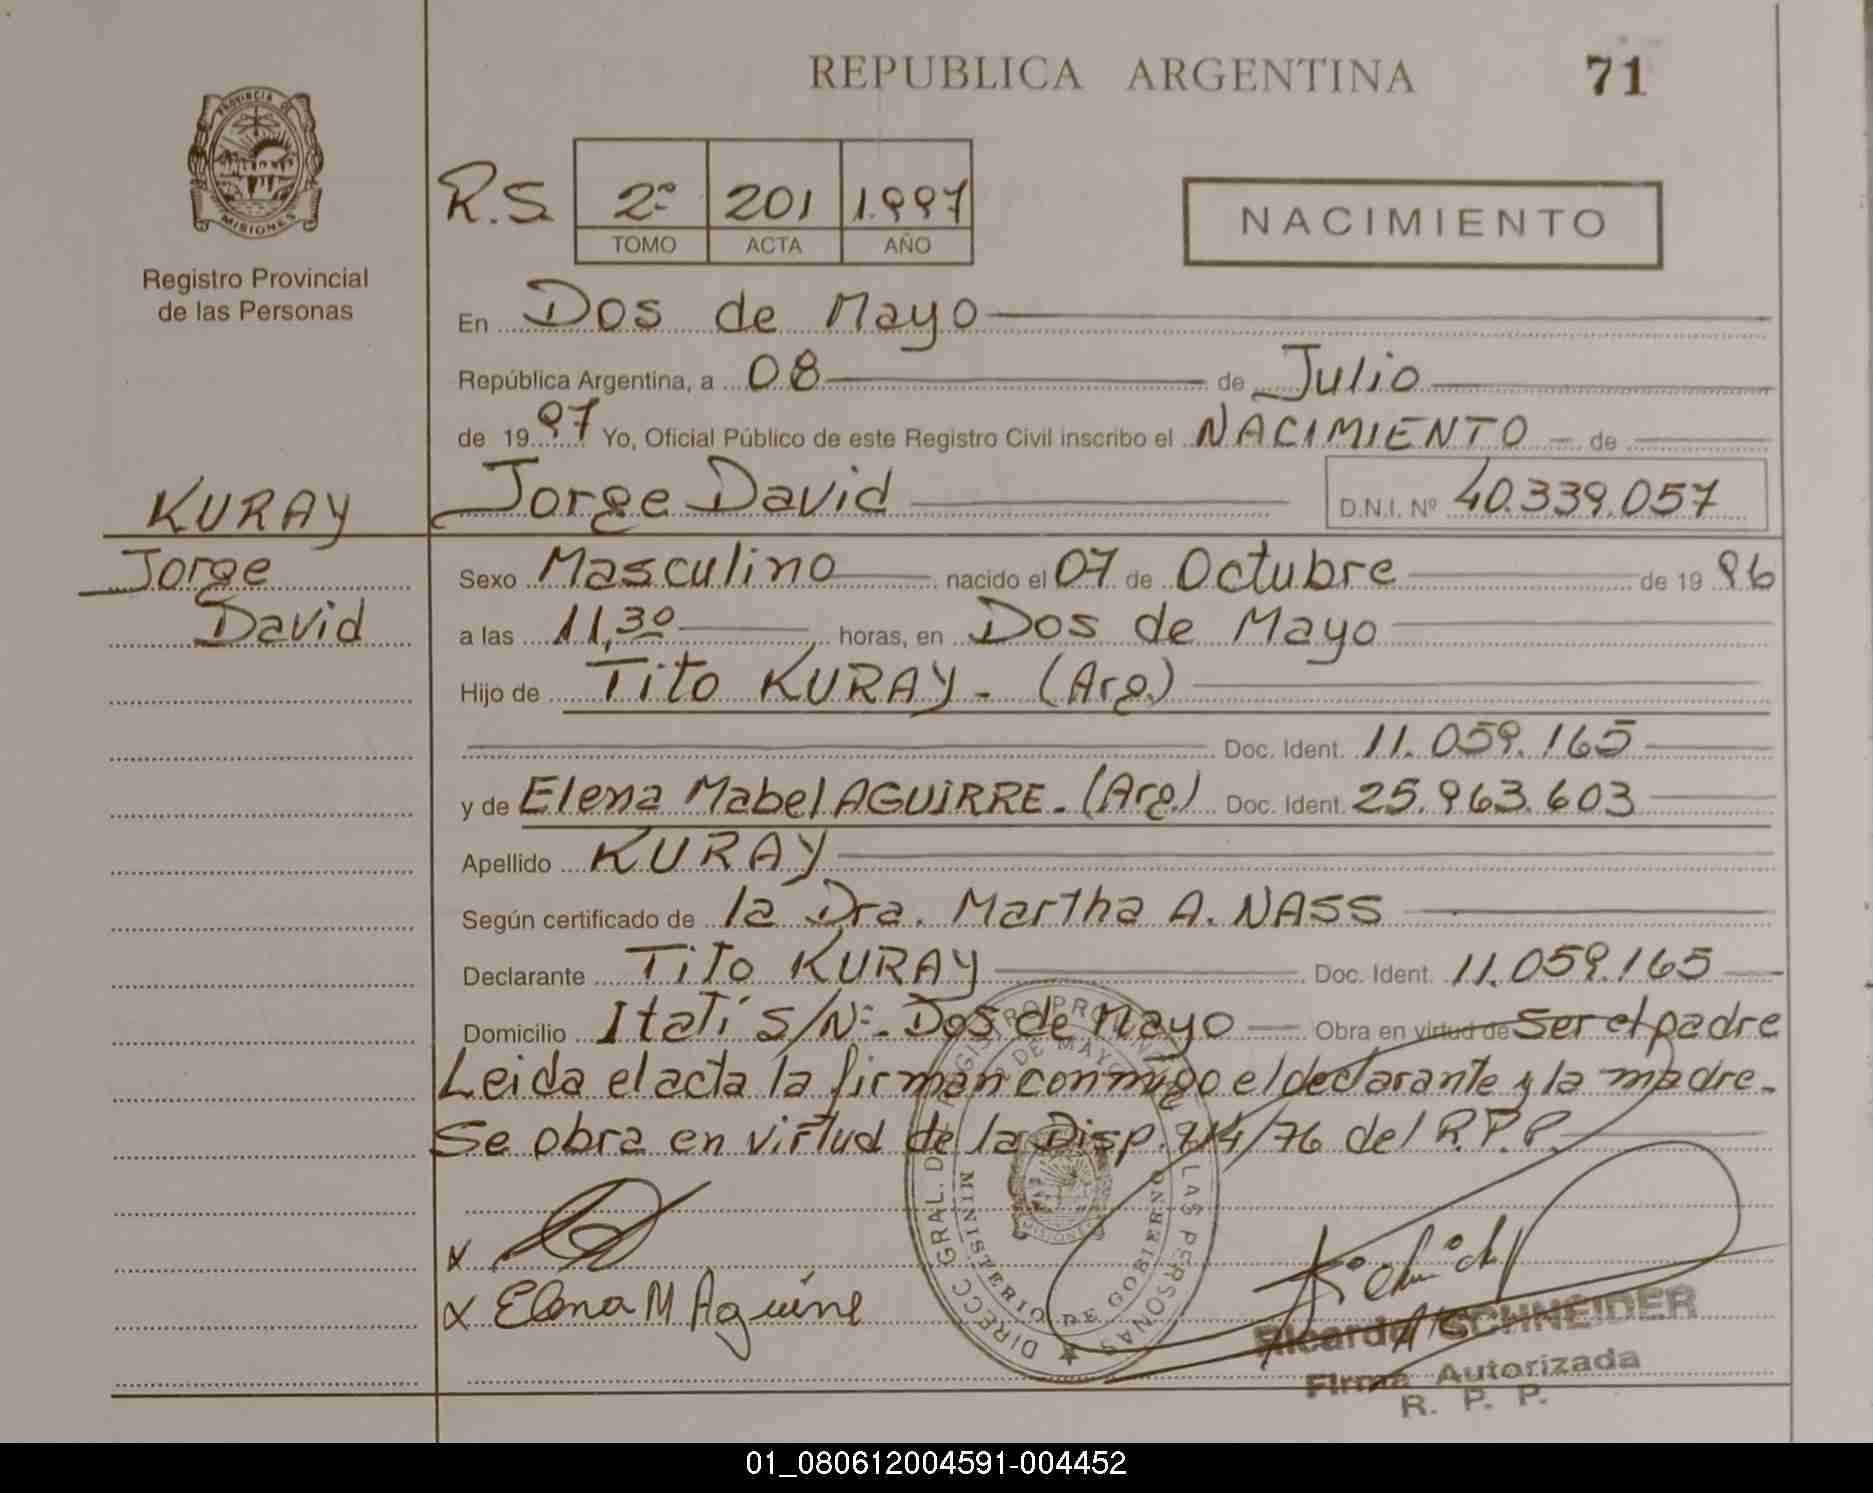 REPUBLICA ARGENTINA 71
PROVINCIA DE
MISIONES
Registro Provincial
de las Personas
R.S. 2º 201 1.997
TOMO ACTA AÑO
NACIMIENTO
En Dos de Mayo
República Argentina, a 08 de Julio
de 1997 Yo, Oficial Público de este Registro Civil inscribo el NACIMIENTO de
KURAY
Jorge
David
Jorge David D.N.I. Nº 40.339.057
Sexo Masculino nacido el 07 de Octubre de 1996
a las 11,30 horas, en Dos de Mayo
Hijo de Tito KURAY - (Arg.)
Doc. Ident. 11.059.165
y de Elena Mabel AGUIRRE. (Arg.) Doc. Ident. 25.963.603
Apellido KURAY
Según certificado de la Dra. Martha A. NASS
Declarante Tito KURAY Doc. Ident. 11.059.165
Domicilio Itatí s/Nº. Dos de Mayo Obra en virtud de ser el padre
Leida el acta la firman conmigo el declarante y la madre.
Se obra en virtud de la Disp. 714/76 del R.P.P.
DIRECC GRAL. DEL REGISTRO PROVINCIAL LAS PERSONAS
2 DE MAYO
MINISTERIO DE GOBIERNO
MISIONES
x
x Elena M Aguirre
Ricardo SCHNEIDER
Firma Autorizada
R. P. P.
01_080612004591-004452